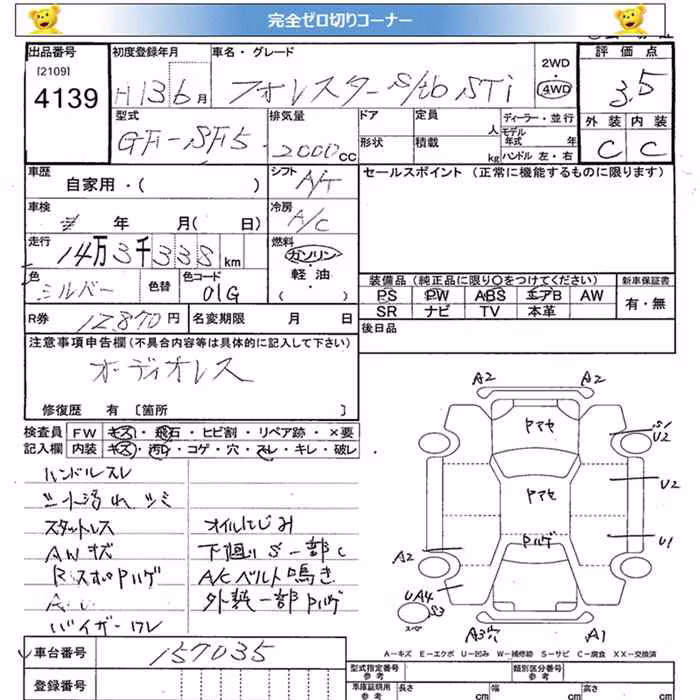 完全ゼロ切りコーナー
出品番号 初度登録年月 車名・グレード 評価点
[2109] 4139 H13 6月 フォレスター S/tb STi 2WD 4WD 3.5
型式 排気量 ドア 定員 人 ディーラー・並行 外装 内装
GF-SF5 2000cc 形状 積載 kg モデル年式 年 ハンドル 左・右 C C
車歴 シフト セールスポイント (正常に機能するものに限ります)
自家用・( ) A/T
車検 年 月( 日) 冷房 A/C
走行 14万3千338km 燃料 ガソリン・軽油・( )
色 シルバー 色替 色コード 01G
装備品 (純正品に限り○をつけてください) 新車保証書
PS PW ABS エアB AW 有・無
SR ナビ TV 本革
R券 12870円 名変期限 月 日
後日品
注意事項申告欄 (不具合内容等は具体的に記入して下さい)
オーディオレス
修復歴 有 [箇所 ]
検査員 FW キズ・飛石・ヒビ割・リペア跡・×要
記入欄 内装 キズ・汚レ・コゲ・穴・スレ・キレ・破レ
ハンドルスレ
シート汚れ シミ
スタットレス オイルにじみ
AWキズ 下廻りS一部C
RスポPハゲ A/Cベルト鳴き
外装一部Pハゲ
バイザーワレ
A2 A2
Pアセ
S1
U2
Pアセ
U2
Pハゲ
U1
A2
UA4
S3
スペ
A3穴 A1
A-キズ E-エクボ U-凹み W-補修跡 S-サビ C-腐食 XX-交換済
車台番号 157035
登録番号
型式指定番号 類別区分番号
車庫証明用参考 長さ cm 幅 cm 高さ cm